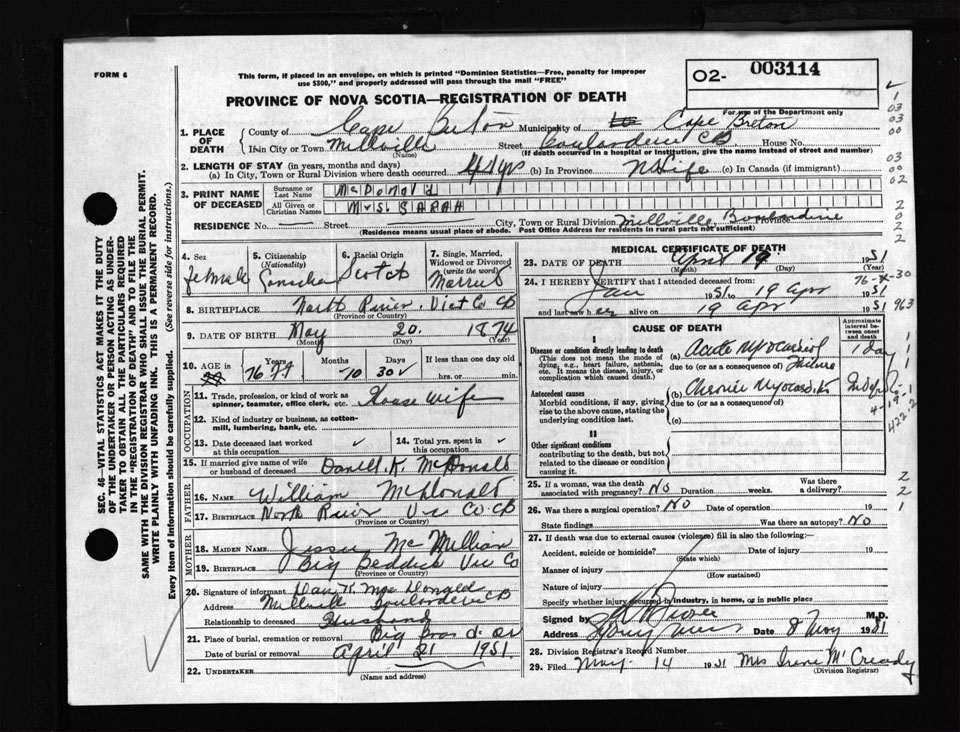 FORM 6
This form, if placed in an envelope, on which is printed "Dominion Statistics—Free, penalty for improper
use $300," and properly addressed will pass through the mail "FREE"
O2- 003114
For use of the Department only
PROVINCE OF NOVA SCOTIA—REGISTRATION OF DEATH
1. PLACE OF DEATH County of Cape Breton Municipality of Cape Breton
If in City or Town Millville (Name) Street Boulardarie CB House No.
(If death occurred in a hospital or institution, give the name instead of street and number)
2. LENGTH OF STAY (in years, months and days)
(a) In City, Town or Rural Division where death occurred yrs (b) In Province Life (c) In Canada (if immigrant)
3. PRINT NAME OF DECEASED Surname or Last Name McDonald
All Given or Christian Names Mrs. SARAH
RESIDENCE No. — Street City, Town or Rural Division Millville, Boulardarie
(Residence means usual place of abode. Post Office Address for residents in rural parts not sufficient)
4. Sex Female 5. Citizenship (Nationality) Canadian 6. Racial Origin Scotch 7. Single, Married, Widowed or Divorced (write the word) Married
8. BIRTHPLACE North River Vict Co CB
(Province or Country)
9. DATE OF BIRTH May (Month) 20. (Day) 1874 (Year)
10. AGE IN Years 76 Months 10 Days 30 If less than one day old hrs. or min.
OCCUPATION
11. Trade, profession, or kind of work as spinner, teamster, office clerk, etc. House Wife
12. Kind of industry or business, as cotton-mill, lumbering, bank, etc.
13. Date deceased last worked at this occupation ✓ 14. Total yrs. spent in this occupation ✓
15. If married give name of wife or husband of deceased Daniel. K. McDonald
FATHER
16. NAME William McDonald
17. BIRTHPLACE North River Vic Co. CB
(Province or Country)
MOTHER
18. MAIDEN NAME Jessie McMillian
19. BIRTHPLACE Big Beddick Vic Co
(Province or Country)
20. Signature of informant Dan K. MacDonald
Address Millvill Boulardarie CB
Relationship to deceased Husband
21. Place of burial, cremation or removal Big Bras d. Or
Date of burial or removal April 21 1951.
22. UNDERTAKER
(Name and address)
MEDICAL CERTIFICATE OF DEATH
23. DATE OF DEATH April (Month) 19 (Day) 1951 (Year)
24. I HEREBY CERTIFY that I attended deceased from:
Jan 1951 to 19 Apr 1951
and last saw her alive on 19 Apr 1951
CAUSE OF DEATH
Approximate interval between onset and death
I
Disease or condition directly leading to death (a) Acute Myocardial Failure 1 day
(This does not mean the mode of dying, e.g., heart failure, asthenia, etc. It means the disease, injury, or complication which caused death.)
due to (or as a consequence of)
Antecedent causes (b) Chronic Myocarditis
Morbid conditions, if any, giving rise to the above cause, stating the underlying condition last.
due to (or as a consequence of)
(c)
II
Other significant conditions contributing to the death, but not related to the disease or condition causing it.
25. If a woman, was the death associated with pregnancy? No Duration weeks. Was there a delivery?
26. Was there a surgical operation? No Date of operation 19
State findings Was there an autopsy? No
27. If death was due to external causes (violence) fill in also the following:
Accident, suicide or homicide? (State which) Date of injury 19
Manner of injury (How sustained)
Nature of injury
Specify whether injury occurred in industry, in home, or in public place
Signed by M.D.
Address Date 8 May 1951
28. Division Registrar's Record Number
29. Filed May 14 1951 Mrs Irene McCready
(Division Registrar)
SEC. 46—VITAL STATISTICS ACT MAKES IT THE DUTY
OF THE UNDERTAKER OR PERSON ACTING AS UNDER-
TAKER TO OBTAIN ALL THE PARTICULARS REQUIRED
IN THE "REGISTRATION OF DEATH" AND TO FILE THE
SAME WITH THE DIVISION REGISTRAR WHO SHALL ISSUE THE BURIAL PERMIT.
WRITE PLAINLY WITH UNFADING INK. THIS IS A PERMANENT RECORD.
Every item of information should be carefully supplied. (See reverse side for instructions.)